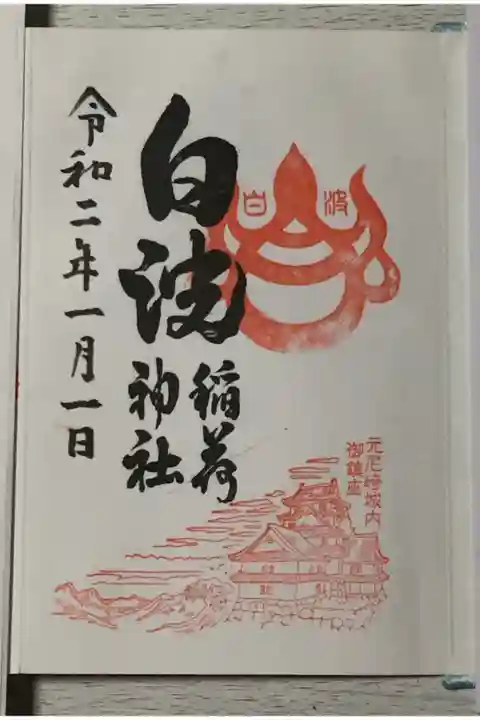 白波
稲荷
神社
令和二年一月一日
白 波
元尼崎城内
御鎮座